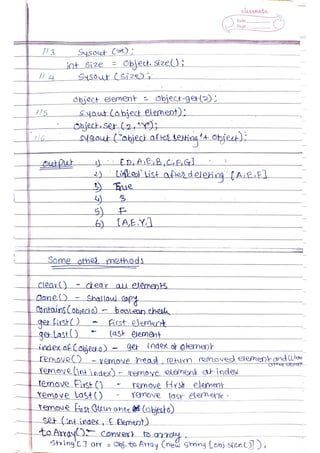 classmate
Date
Page
//3 Sysout (x);
int size = object.size();
//4 Sysout (size);
object element = object.get(2);
//5 Syout (object element);
object.set (2, "Y");
//6 Sysout ("object after setting"+ object);
output 1) [D,A,E,B,C,F,G]
2) Linked list after deleting [A,E,F]
3) True
4) 3
5) F
6) [A,E,Y]
Some other methods
clear() - clear all elements
clone() - shallow copy
contains(object o) - boolean check
get First() - First element
get Last() - last element
index of (object o) - get index of element
remove() - remove head, return removed element and
remove (int index) - remove element at index
remove First() - remove first element
remove Last() - remove last element
remove First Occurance (object o)
set (int index, E Element)
to Array() - convert to array.
String [] arr = obj. to Array (new String [obj size()]).